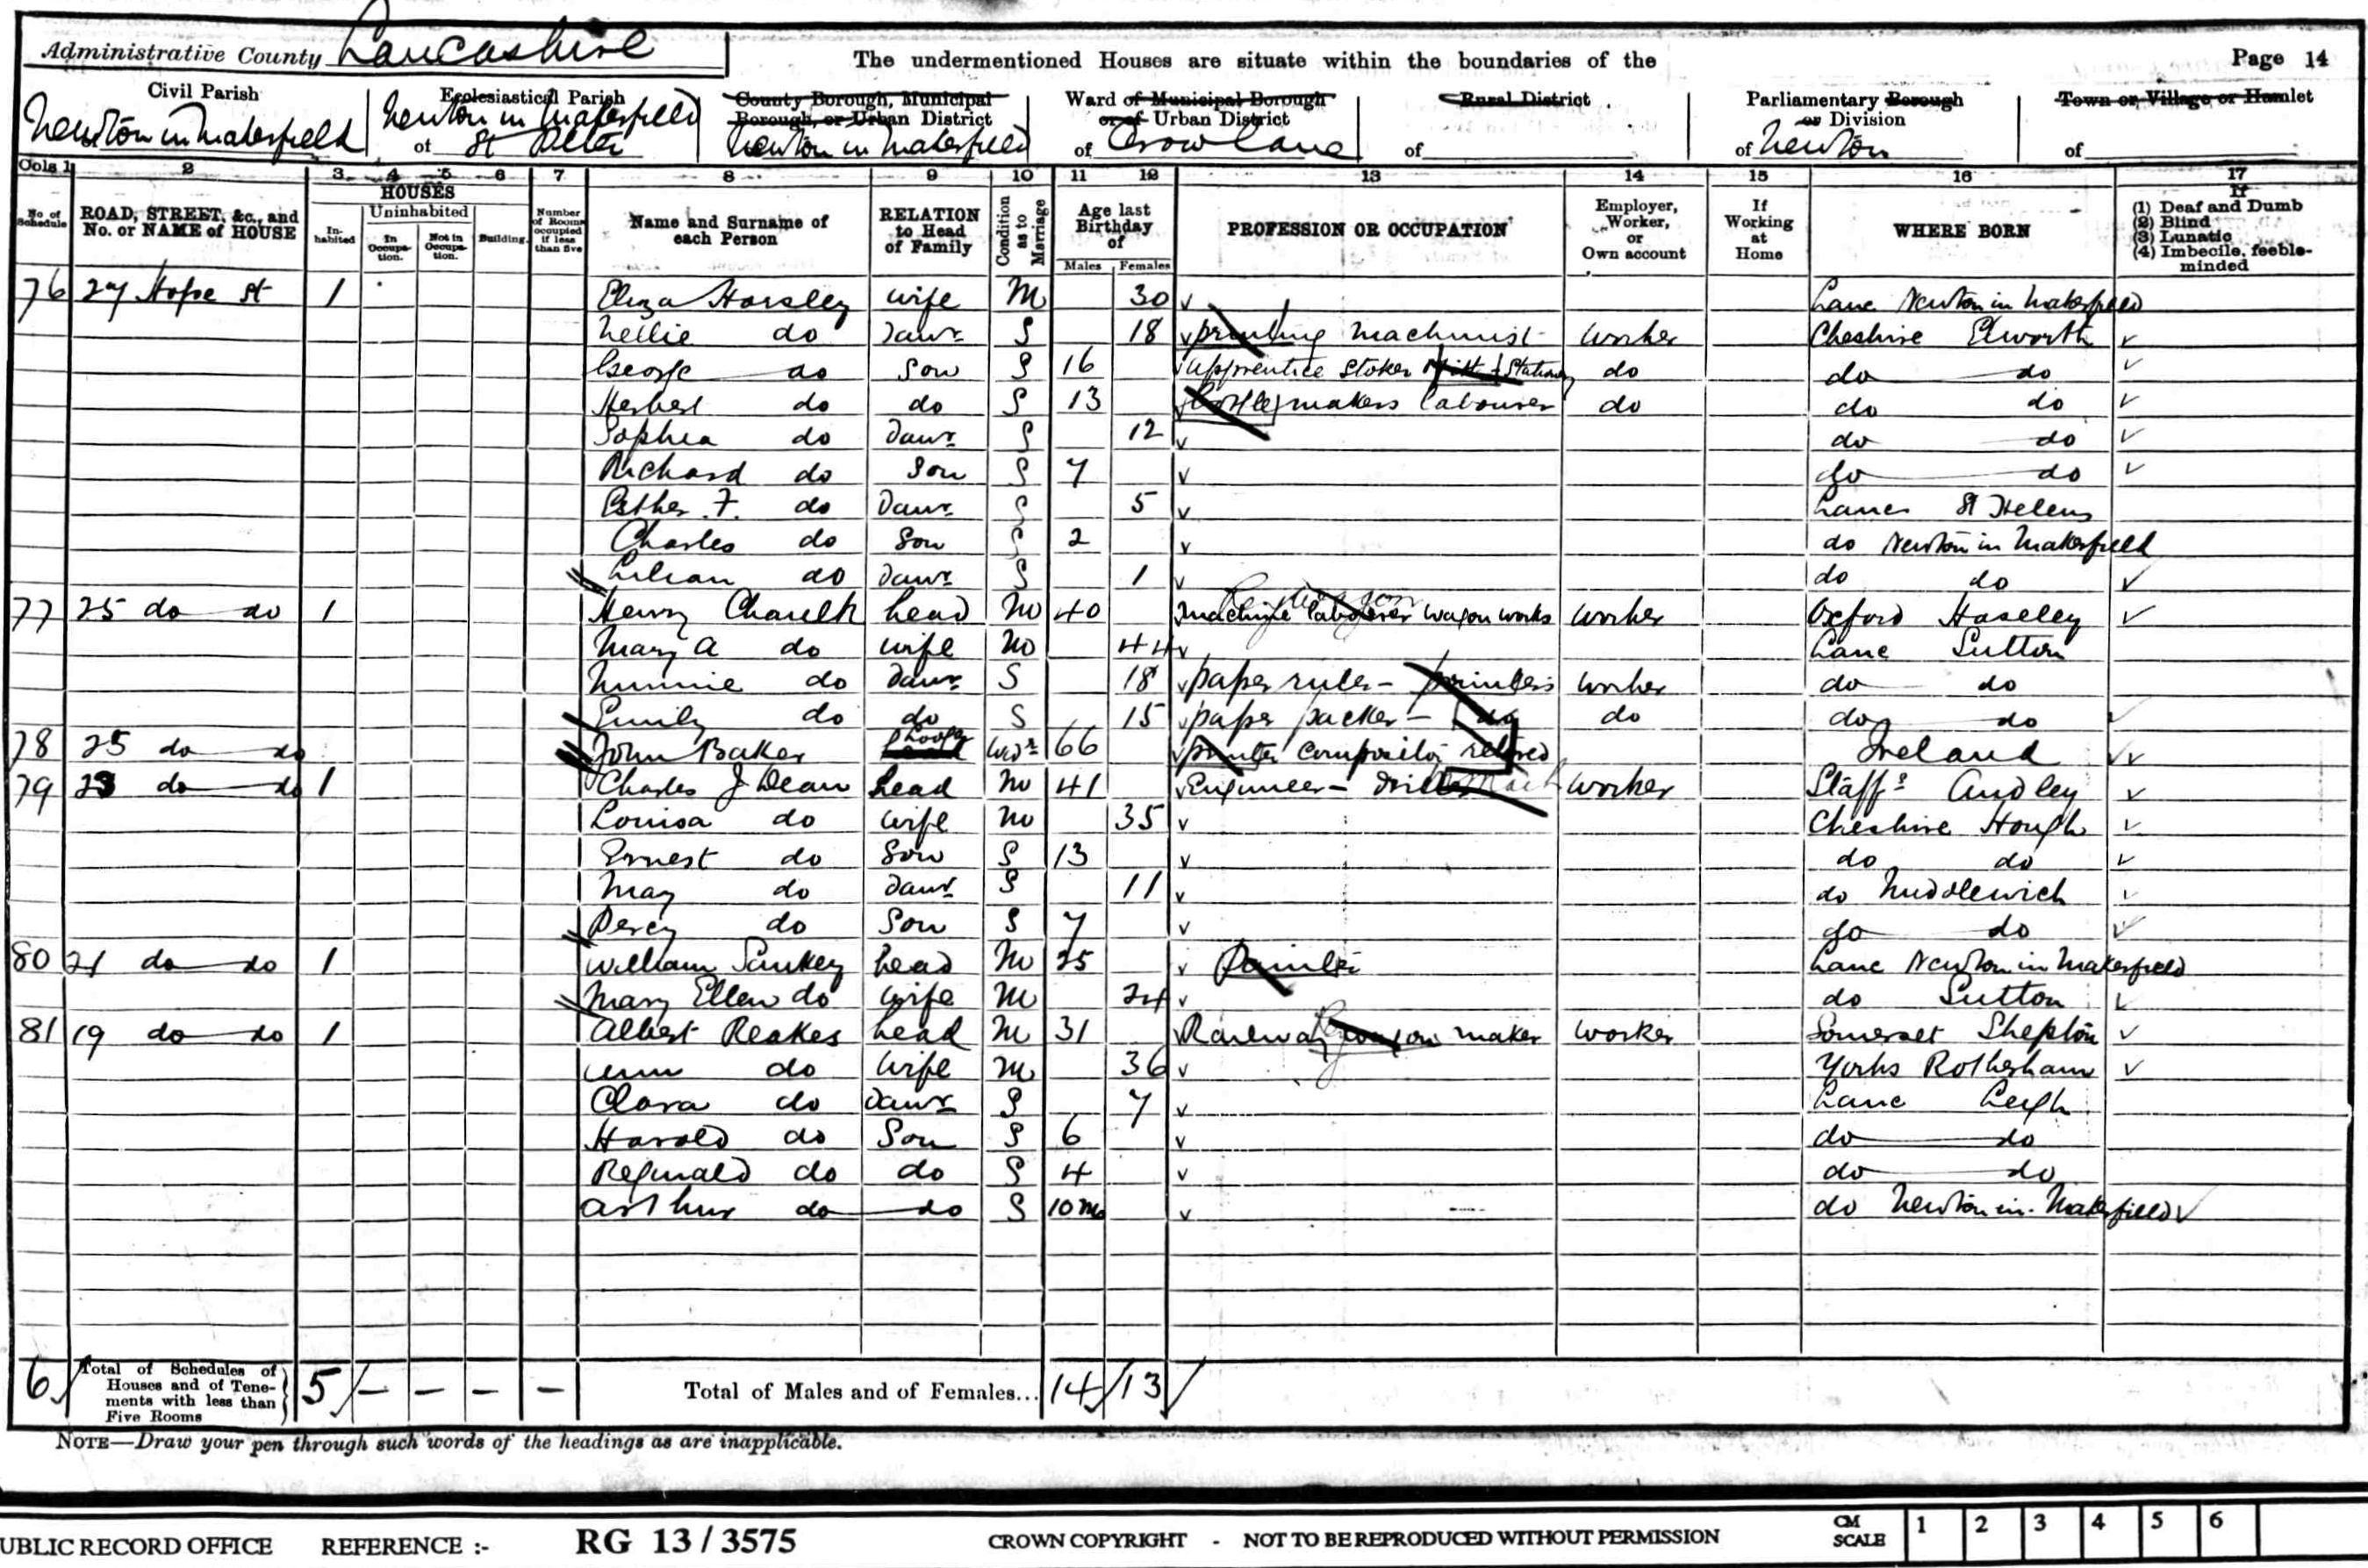 Administrative County Lancashire
The undermentioned Houses are situate within the boundaries of the
Page 14
Civil Parish
Ecclesiastical Parish
County Borough, Municipal Borough, or Urban District
Ward of Municipal Borough or of Urban District
Rural District
Parliamentary Borough or Division
Town or Village or Hamlet
Newton in Makerfield
Newton in Makerfield
of St Peter
Newton in Makerfield
of Crow Lane
of
of Newton
of
Cols 1 2 3 4 5 6 7 8 9 10 11 12 13 14 15 16 17
No. of Schedule
ROAD, STREET, &c., and No. or NAME of HOUSE
HOUSES
Inhabited
Uninhabited
In Occupation.
Not in Occupation.
Building.
Number of Rooms occupied if less than five
Name and Surname of each Person
RELATION to Head of Family
Condition as to Marriage
Age last Birthday of
Males Females
PROFESSION OR OCCUPATION
Employer, Worker, or Own account
If Working at Home
WHERE BORN
If
(1) Deaf and Dumb
(2) Blind
(3) Lunatic
(4) Imbecile, feeble-minded
76 27 Hope St 1 Eliza Horsley wife M 30 Lanc Newton in Makerfield
Nellie do Daur S 18 printing machinist worker Cheshire Elworth
George do Son S 16 apprentice stoker Stationary do do do
Herbert do do S 13 makers labourer do do do
Sophia do Daur S 12 do do
Richard do Son S 7 do do
Esther F. do Daur S 5 Lanc St Helens
Charles do Son S 2 do Newton in Makerfield
Lilian do Daur S 1 do do
77 25 do do 1 Henry Chaulk head M 40 machine labourer wagon works worker Oxford Haseley
Mary A do wife M 44 Lanc Sutton
Minnie do Daur S 18 paper ruler - printers worker do do
Emily do do S 15 paper packer - do do do do
78 25 do do John Baker Lodger Widr 66 printer compositor retired Ireland
79 23 do do 1 Charles J Dean head M 41 Engineer - driller worker Staffs Audley
Louisa do wife M 35 Cheshire Hough
Ernest do Son S 13 do do
May do Daur S 11 do Middlewich
Percy do Son S 7 do do
80 21 do do 1 William Sankey head M 25 Painter Lanc Newton in Makerfield
Mary Ellen do wife M 24 do Sutton
81 19 do do 1 Albert Reakes head M 31 Railway wagon maker worker Somerset Shepton
Ann do wife M 36 Yorks Rotherham
Clara do Daur S 7 Lanc Leigh
Harold do Son S 6 do do
Reginald do do S 4 do do
Arthur do do S 10 mo do Newton in Makerfield
6 Total of Schedules of Houses and of Tenements with less than Five Rooms 5 - - - - Total of Males and of Females... 14 13
NOTE—Draw your pen through such words of the headings as are inapplicable.
UBLIC RECORD OFFICE REFERENCE :- RG 13 / 3575 CROWN COPYRIGHT - NOT TO BE REPRODUCED WITHOUT PERMISSION CM SCALE 1 2 3 4 5 6